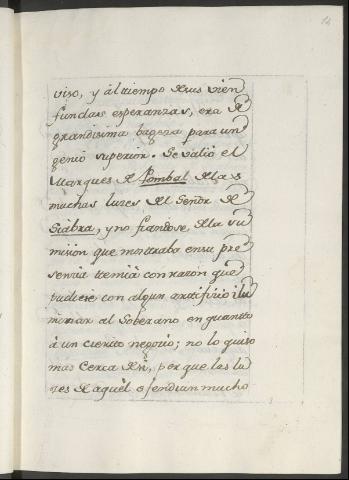 14
viso, y àl tiempo de sus vien
fundas esperanzas, era de
grandisima bageza para un
genio superior. Se valio el
Marques de Pombal de las
muchas luzes del Señor de
Siabra, y no fiandose de la su
mision que mostraba en su pre
sencia temia con razon que
pudiese con algun artificio ilu
minar al Soberano en quanto
à un cierto negocio; no lo quiso
mas cerca de si, por que las lu
zes de aquèl ofendian mucho